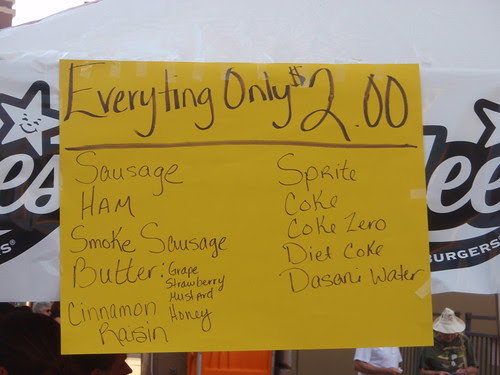 Everyting Only $2.00
Sausage
HAM
Smoke Sausage
Butter: Grape
Strawberry
Mustard
Honey
Cinnamon
Raisin
Sprite
Coke
Coke Zero
Diet Coke
Dasani Water
es
ee
BURGERS